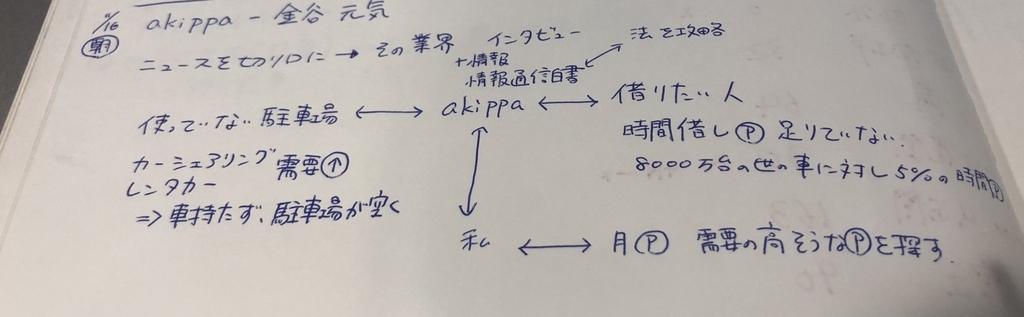 11/16 akippa - 金谷 元気
朝 ニュースを切り口に → その業界 インタビュー
+情報
情報通信白書
法を攻略
使っていない 駐車場 ↔ akippa ↔ 借りたい人
時間借し Ⓟ 足りていない.
8000万台の世の車に対し5%の時間Ⓟ
カーシェアリング 需要↑
レンタカー
⇒ 車持たず、駐車場が空く
私 ↔ 月Ⓟ 需要の高そうなⓅを探す.